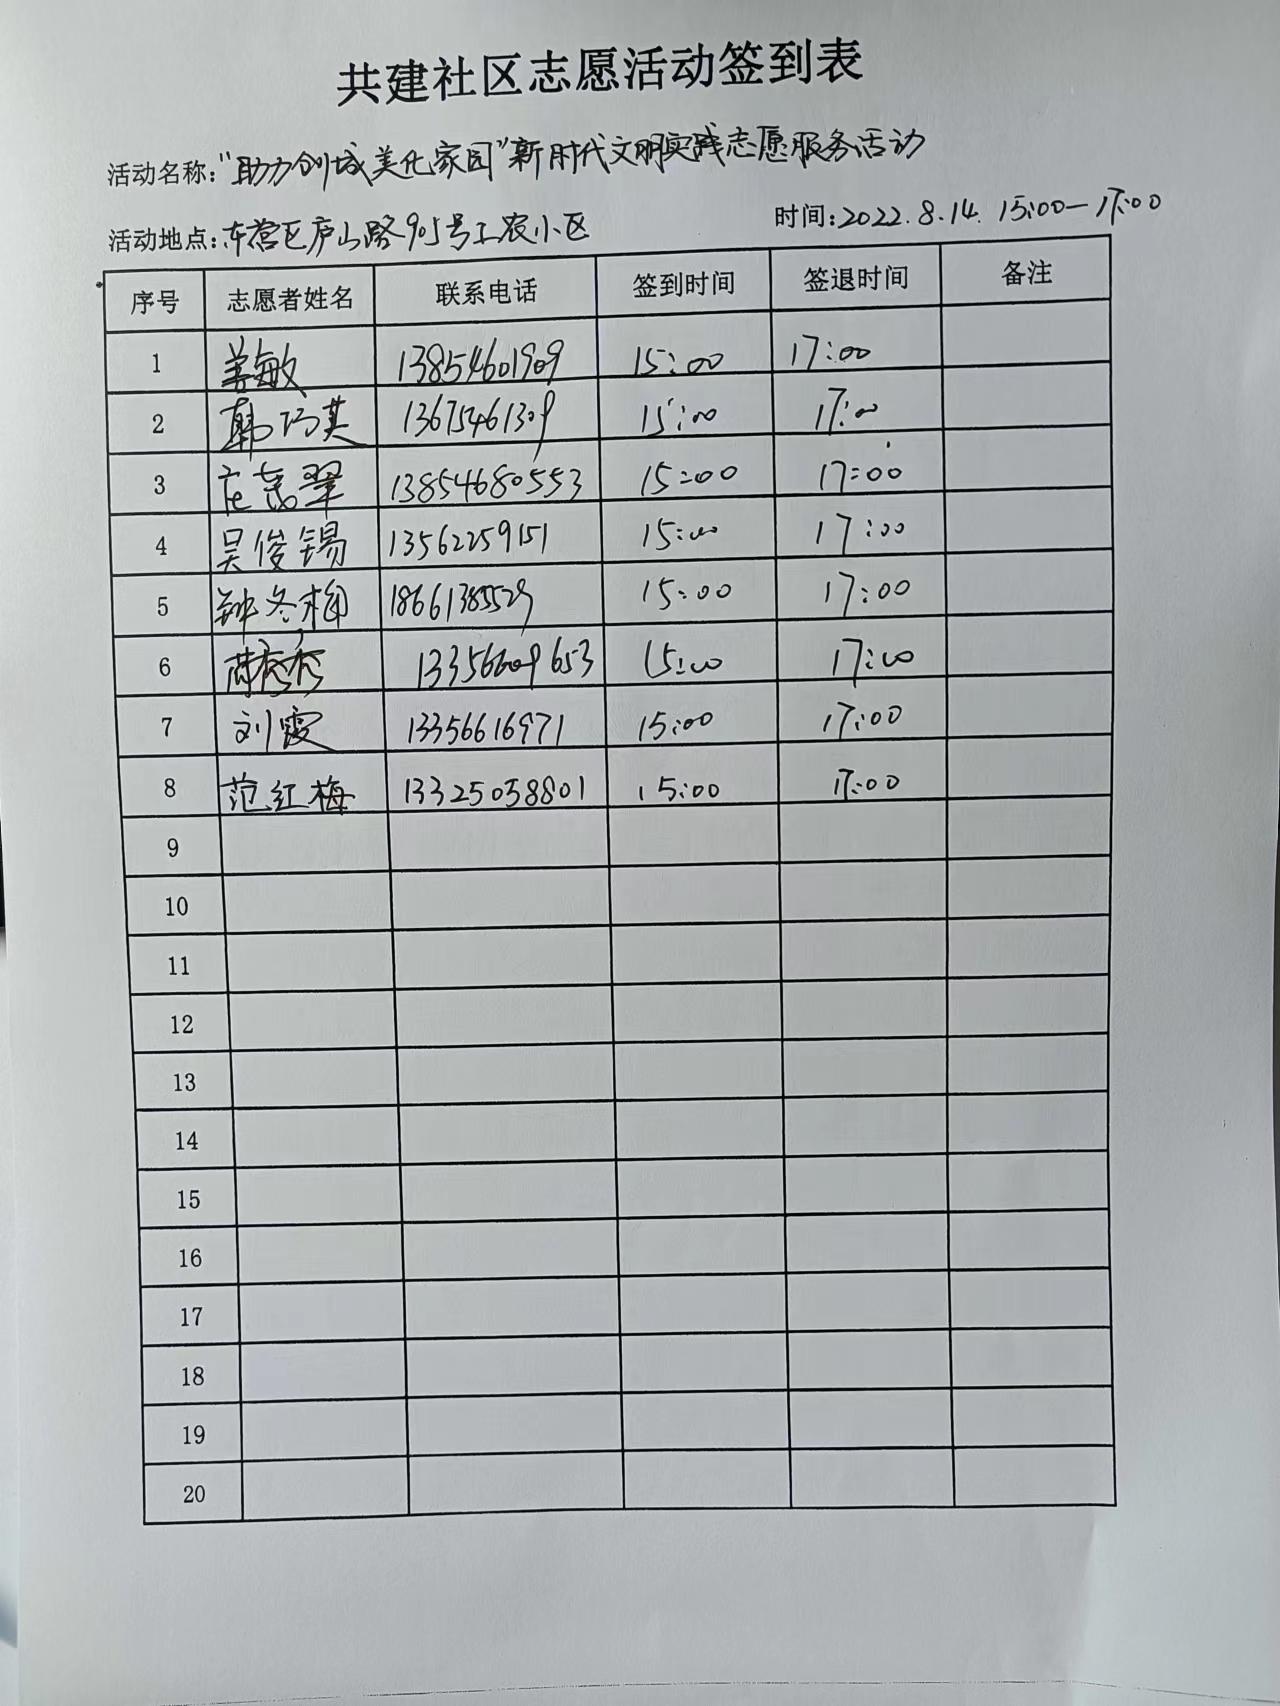 共建社区志愿活动签到表
活动名称:“助力创城美化家园”新时代文明实践志愿服务活动
活动地点:东营区庐山路905号工农小区 时间:2022.8.14. 15:00-17:00
序号 志愿者姓名 联系电话 签到时间 签退时间 备注
1 姜敏 13854601909 15:00 17:00
2 韩巧英 13675461309 15:00 17:00
3 13854680553 15:00 17:00
4 吴俊锡 13562259151 15:00 17:00
5 钟冬梅 18661385529 15:00 17:00
6 13356609653 15:00 17:00
7 刘霞 13356616971 15:00 17:00
8 范红梅 13325058801 15:00 17:00
9
10
11
12
13
14
15
16
17
18
19
20